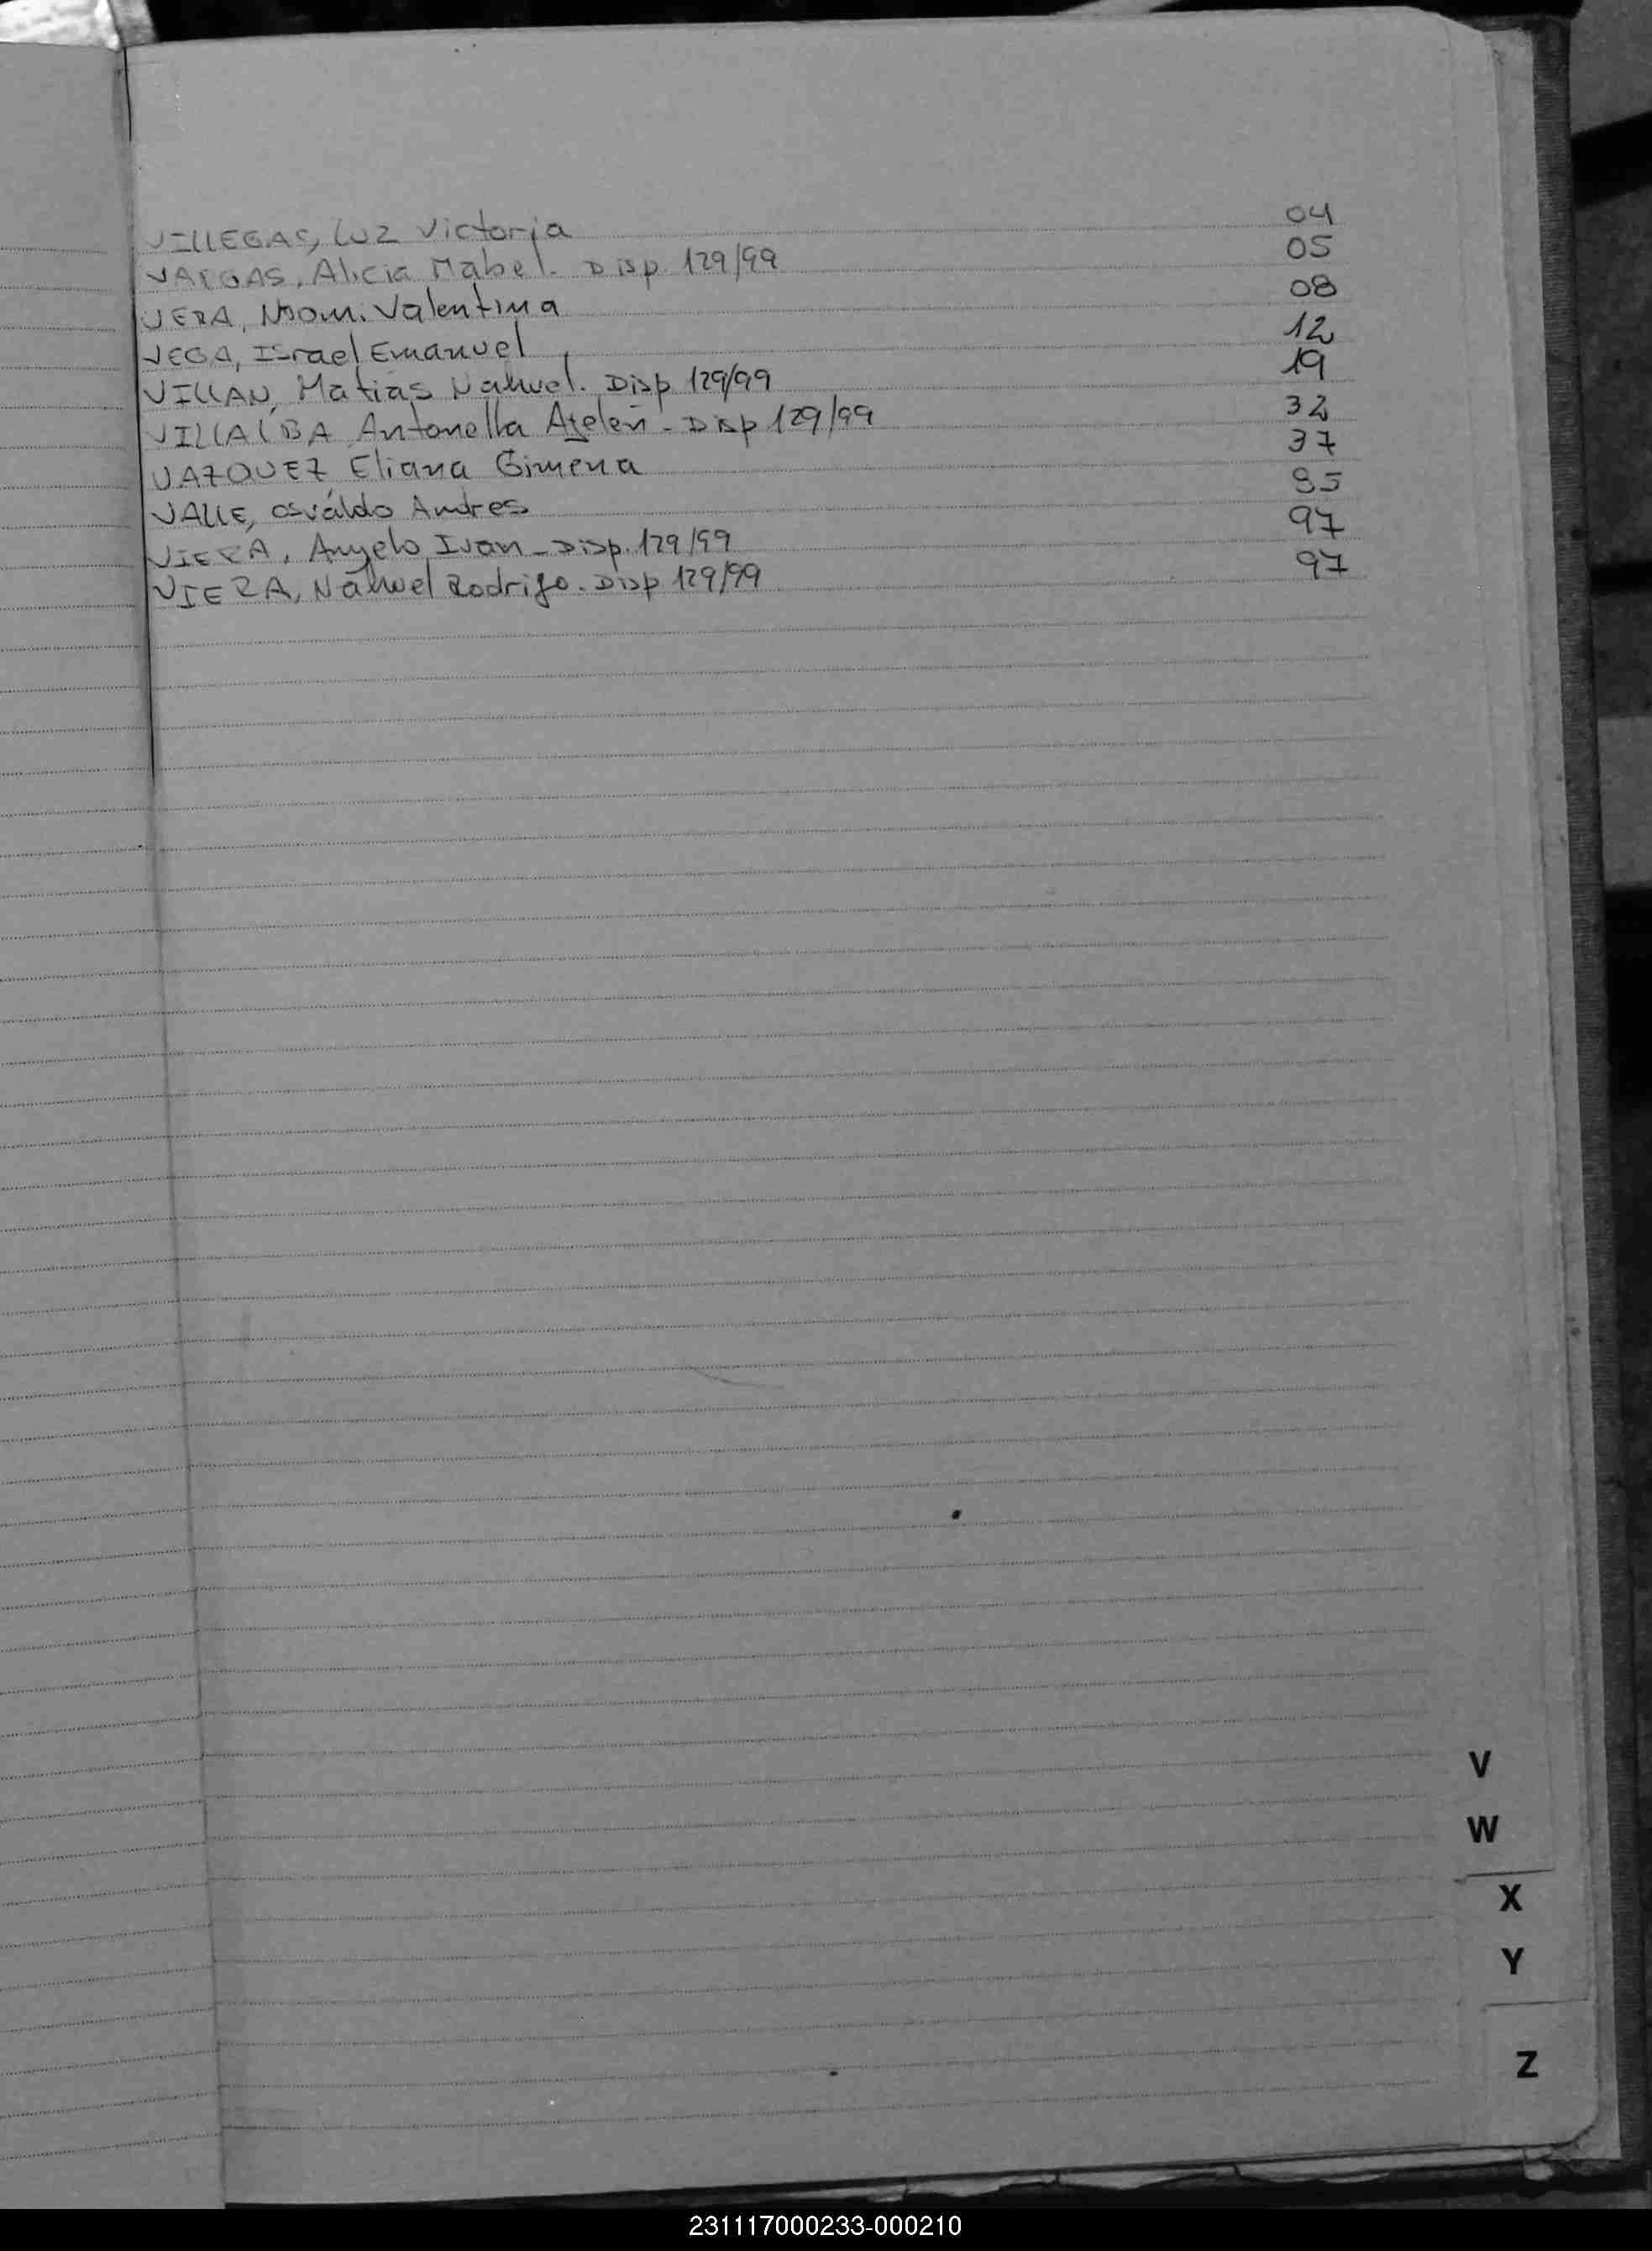 VILLEGAS, Luz Victoria 04
VARGAS, Alicia Mabel. Disp 129/99 05
VERA, Noomi Valentina 08
VEGA, Israel Emanuel 12
VILLAN, Matias Nahuel. Disp 129/99 19
VILLALBA Antonella Ayelen - Disp 129/99 32
VAZQUEZ Eliana Gimena 37
VALLE, Osváldo Andres 95
VIERA, Angelo Ivan - Disp. 129/99 97
VIERA, Nahuel Rodrigo. Disp 129/99 97
V
W
X
Y
Z
231117000233-000210